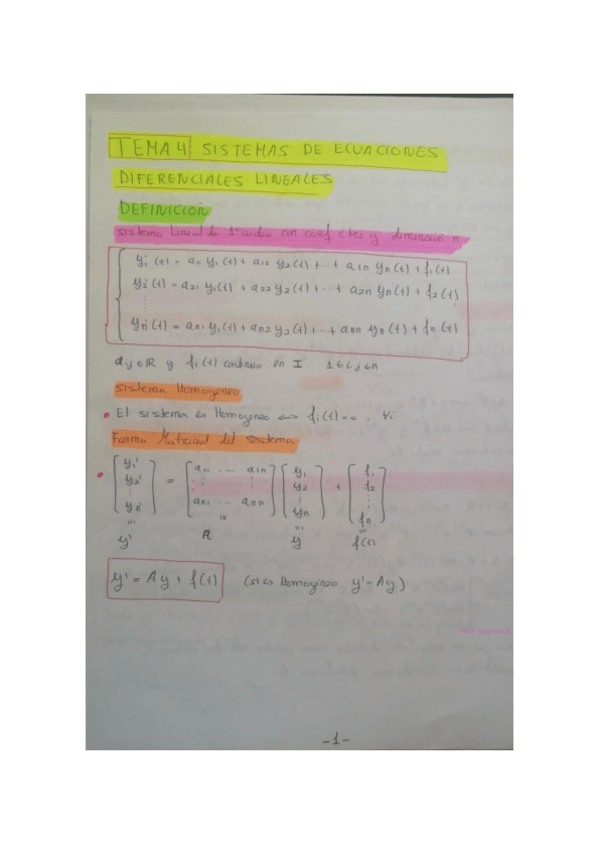 TEMA 4: SISTEMAS DE ECUACIONES
DIFERENCIALES LINEALES
DEFINICIÓN
sistema lineal de 1er orden con coef ctes y dimensión n
y1'(t) = a11 y1(t) + a12 y2(t) + ... + a1n yn(t) + f1(t)
y2'(t) = a21 y1(t) + a22 y2(t) + ... + a2n yn(t) + f2(t)
⋮
yn'(t) = an1 y1(t) + an2 y2(t) + ... + ann yn(t) + fn(t)
aij ∈ R y fi(t) continuas en I. 1 ≤ i,j ≤ n
sistema Homogeneo
• El sistema es Homogeneo ⇔ fi(t) = 0, ∀i
Forma Matricial del sistema
• [y1' y2' ⋮ yn'] = [a11 ... a1n ⋮ ⋮ an1 ... ann] [y1 y2 ⋮ yn] + [f1 f2 ⋮ fn]
y' A y f(t)
y' = Ay + f(t) (si es Homogéneo y' = Ay)
-1-